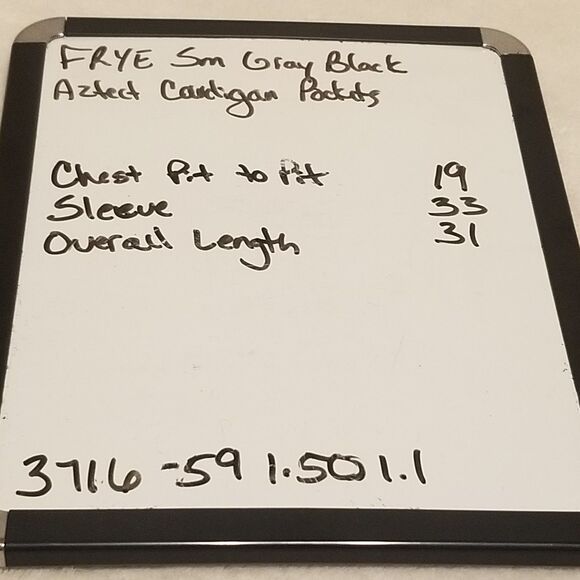 FRYE Sm Gray Black
Aztect Cardigan Pockets
Chest Pit to Pit 19
Sleeve 33
Overall Length 31
3716 -59 1.50 1.1